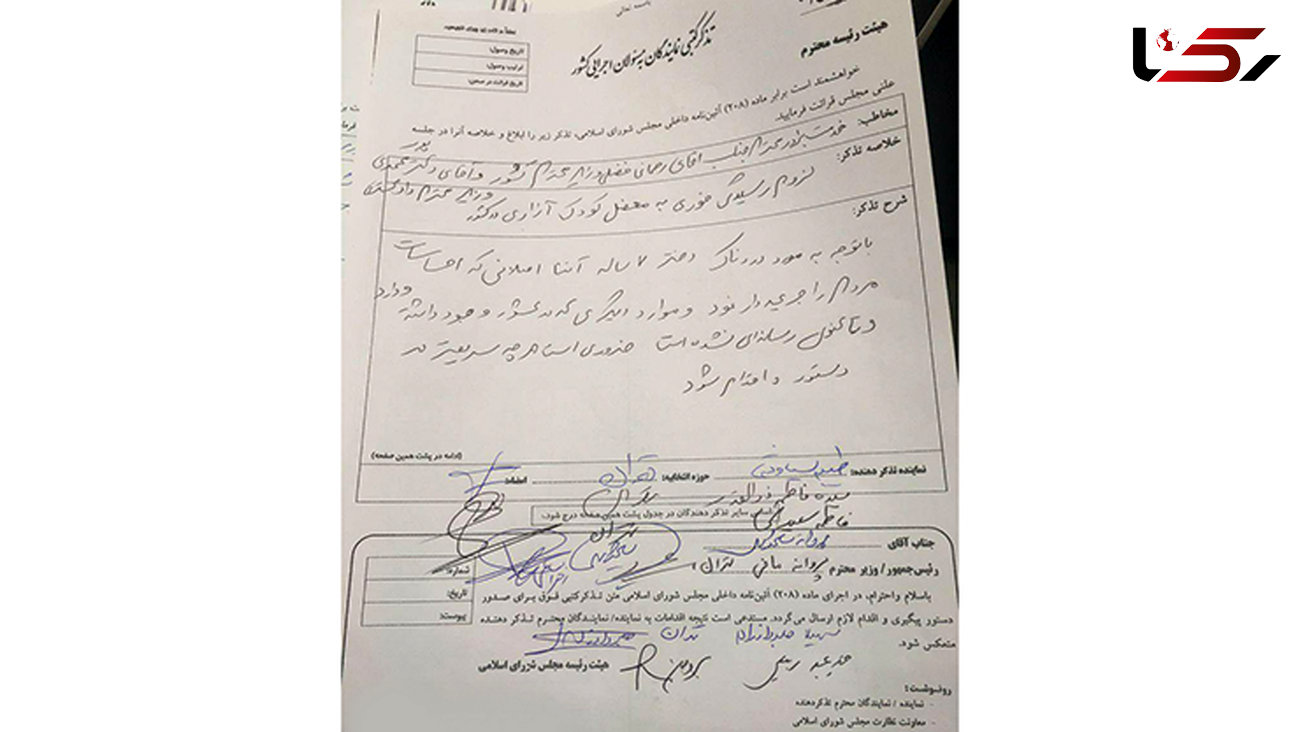 رکنا
باسمه تعالی
تذکر کتبی نمایندگان به مسئولان اجرایی کشور
هیئت رئیسه محترم
تاریخ وصول:
ترتیب وصول:
تاریخ قرائت در صحن:
خواهشمند است برابر ماده (۲۰۸) آئین‌نامه داخلی مجلس شورای اسلامی، تذکر زیر را ابلاغ و خلاصه آنرا در جلسه
علنی مجلس قرائت فرمایید.
مخاطب: خدمت برادر محترم جناب آقای رحمانی فضلی وزیر محترم کشور و آقای دکتر
وزیر محترم دادگستری
خلاصه تذکر: لزوم رسیدگی فوری به معضل کودک آزاری در کشور
شرح تذکر:
با توجه به مورد دردناک دختر ۷ ساله آتنا اصلانی که احساسات
مردم را جریحه دار نمود و موارد دیگری که در کشور وجود داشته و دارد
و تاکنون رسانه‌ای نشده است ضروری است هر چه سریعتر در
دستور و اقدام شود
(ادامه در پشت همین صفحه)
نماینده تذکر دهنده: طیبه سیاوشی حوزه انتخابیه: تهران امضاء:
سیده فاطمه ذوالقدر تهران
اسامی سایر تذکر دهندگان در جدول پشت همین صفحه درج شود.
فاطمه سعیدی تهران
جناب آقای
رئیس‌جمهور / وزیر محترم پروانه مافی تهران
شماره:
تاریخ:
پیوست:
باسلام واحترام، در اجرای ماده (۲۰۸) آئین‌نامه داخلی مجلس شورای اسلامی متن تذکر کتبی فوق برای صدور
دستور پیگیری و اقدام لازم ارسال می‌گردد. مستدعی است نتیجه اقدامات به نماینده/ نمایندگان محترم تذکر دهنده
منعکس شود.
تهران
هیئت رئیسه مجلس شورای اسلامی
رونوشت:
- نماینده / نمایندگان محترم تذکر دهنده
- معاونت نظارت مجلس شورای اسلامی